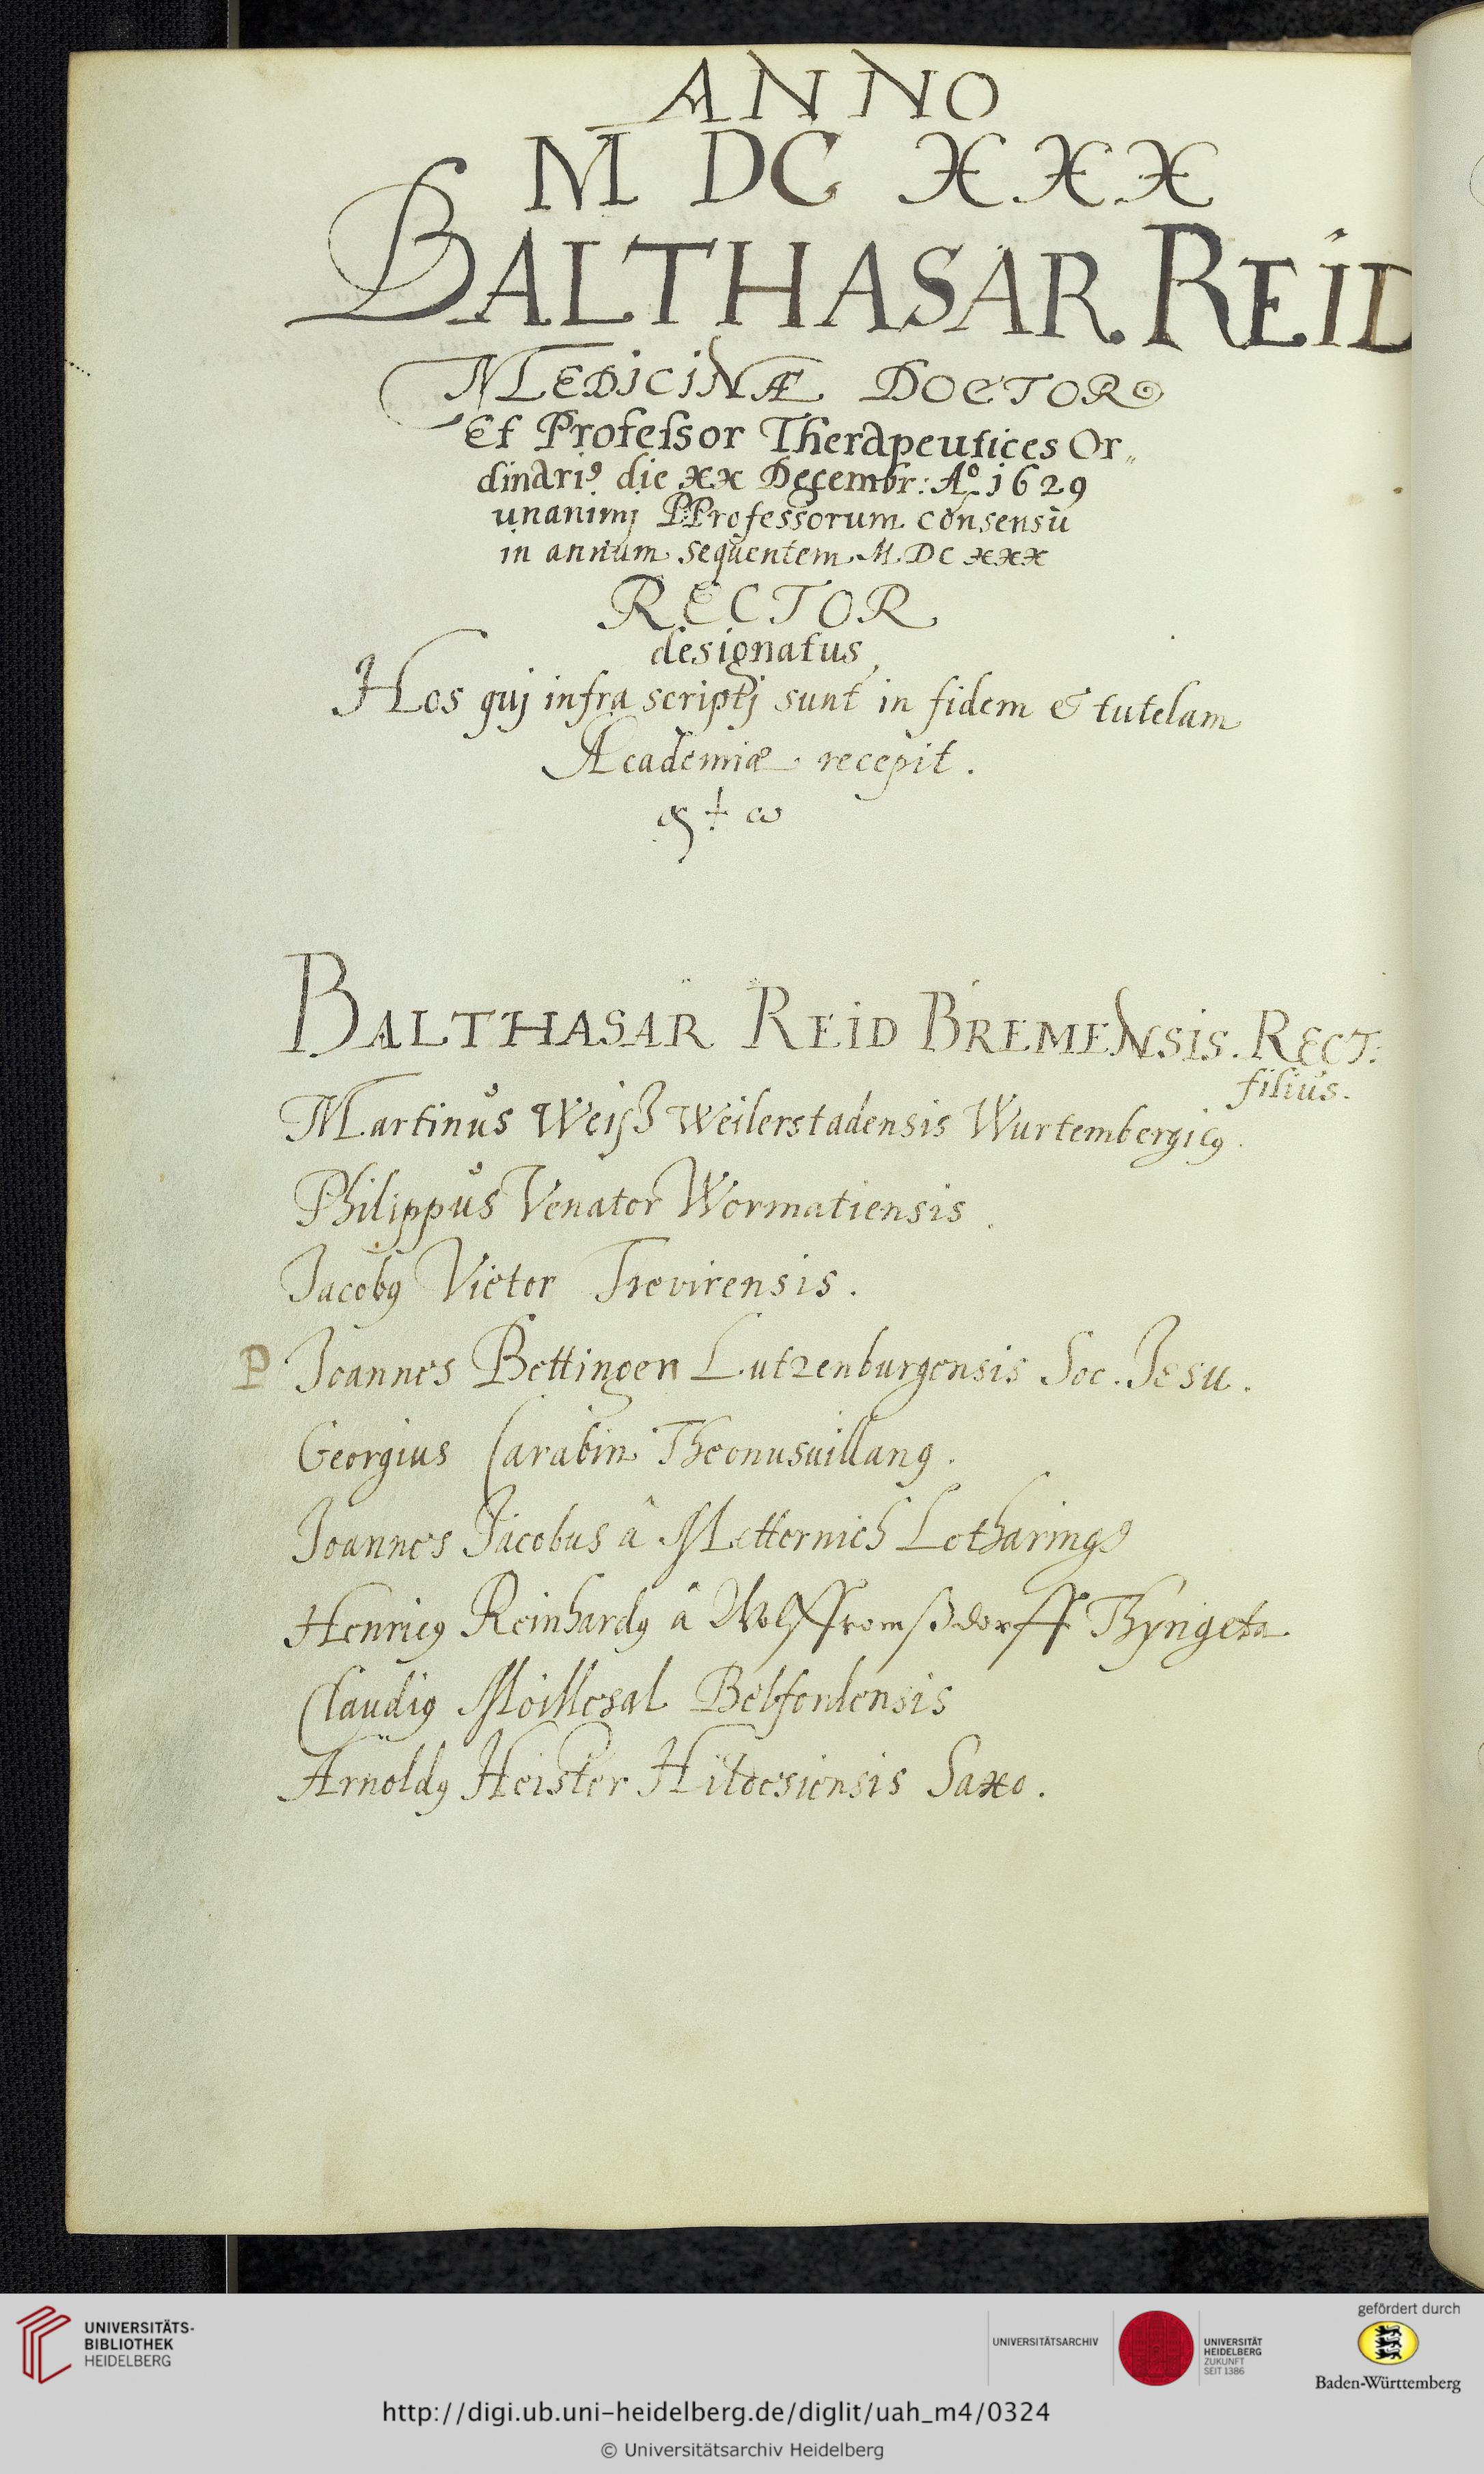 ANNO
M DC XXX
BALTHASAR REID
MEDICINÆ DOCTOR
Et Professor Therapeutices Or„
dinari9 die xx Decembr: Aº. 1629
unanimj PProfessorum consensu
in annum sequentem M DC xxx
RECTOR
designatus,
Hos quj infra scriptj sunt in fidem & tutelam
Academiæ recepit.
α † ω
BALTHASAR REID BREMENSIS. RECT:
filius.
Martinus Weiß Weilerstadensis Wurtembergic9.
Philippus Venator Wormatiensis.
Jacob9 Victor Trevirensis.
P Joannes Bettingen Lutzenburgensis Soc. Jesu.
Georgius Carabin Theonusvillan9.
Joannes Jacobus â Metternich Lotharing9
Henric9 Reinhard9 â Wolffromßdorff Thyrigeta
Claudi9 Belfordensis
Arnold9 Heister Hildesiensis Saxo.
UNIVERSITÄTS-
BIBLIOTHEK
HEIDELBERG
UNIVERSITÄTSARCHIV
UNIVERSITÄT
HEIDELBERG
ZUKUNFT
SEIT 1386
gefördert durch
Baden-Württemberg
http://digi.ub.uni-heidelberg.de/diglit/uah_m4/0324
© Universitätsarchiv Heidelberg